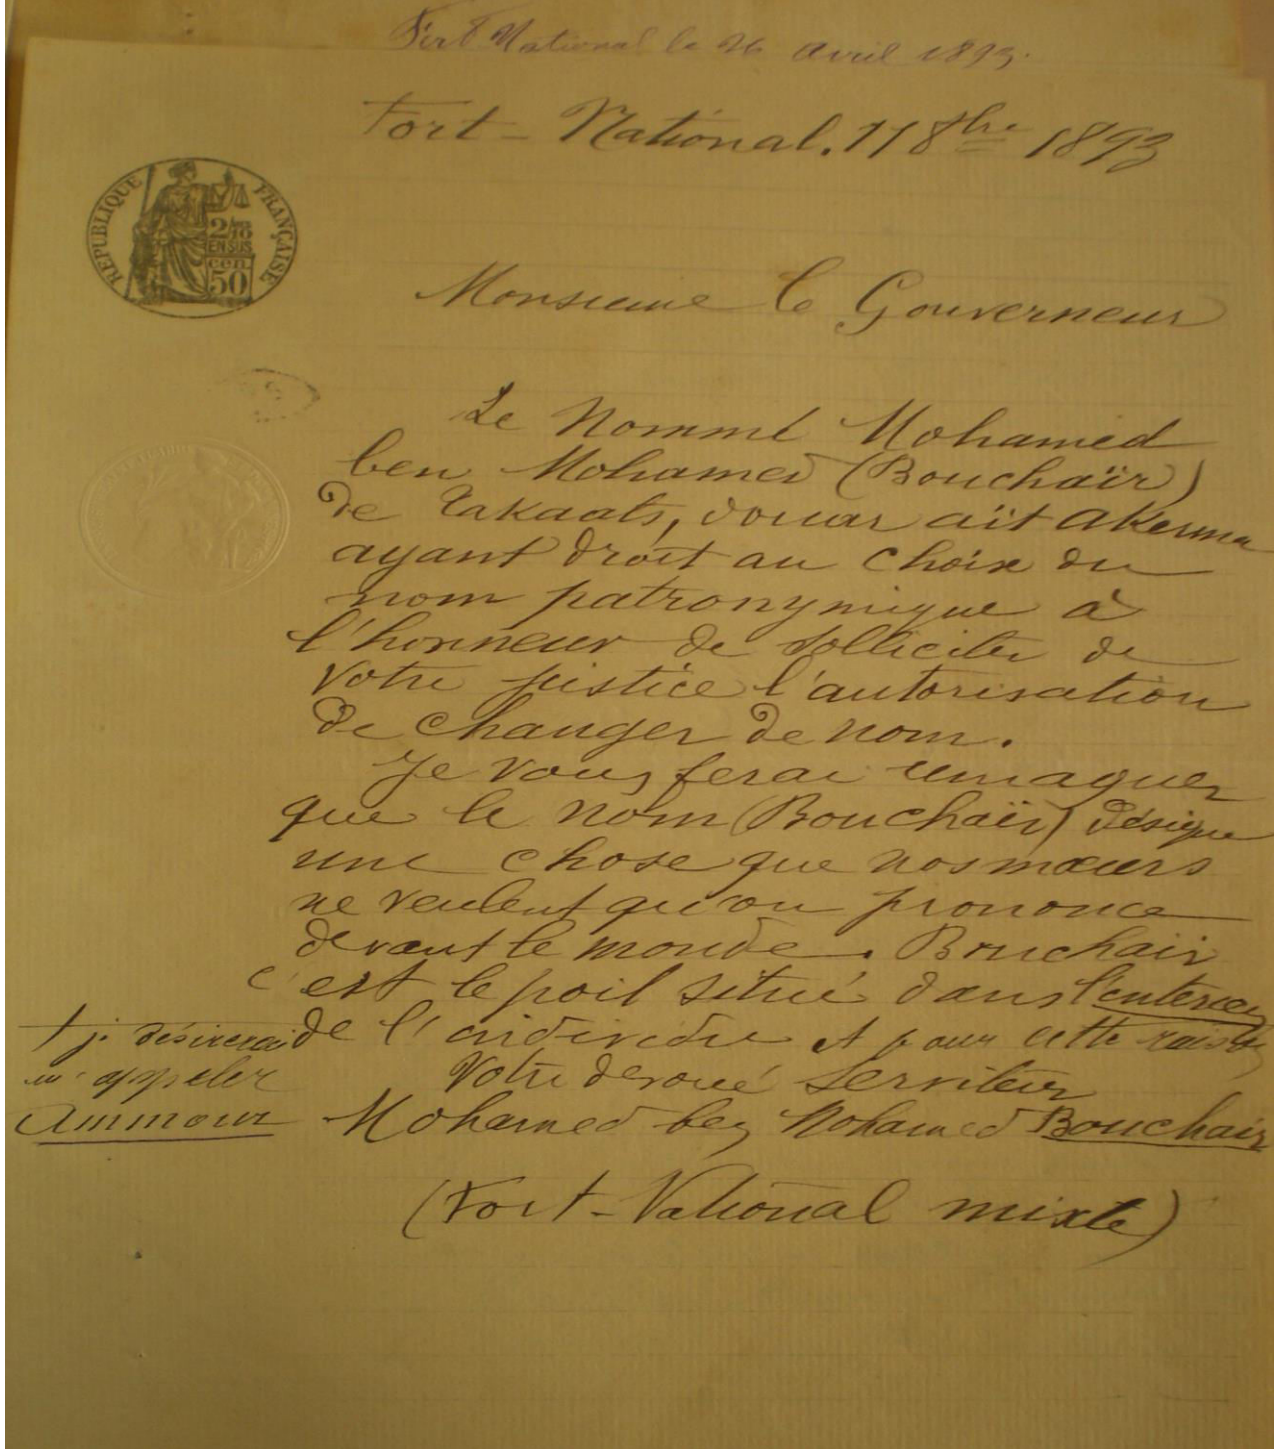 Fort National le 26 avril 1893.
Fort-National. 11 8bre 1893
REPUBLIQUE FRANÇAISE
2/10
EN SUS
50
Monsieur le Gouverneur
Le Nommé Mohamed
ben Mohamed (Bouchaïr)
de Takaats, douar aït akerma
ayant droit au choix du
nom patronymique à
l'honneur de solliciter de
votre justice l'autorisation
de changer de nom.
Je vous ferai remaquer
que le nom (Bouchaïr) désigne
une chose que nos mœurs
ne veulent qu'on prononce
devant le monde. Bouchair
c'est le poil situé dans
de l'individu et pour cette raison
+ je désirerai
m'appeler
Ammour
Votre dévoué serviteur
Mohamed ben Mohamed Bouchair
(Fort-National mixte)